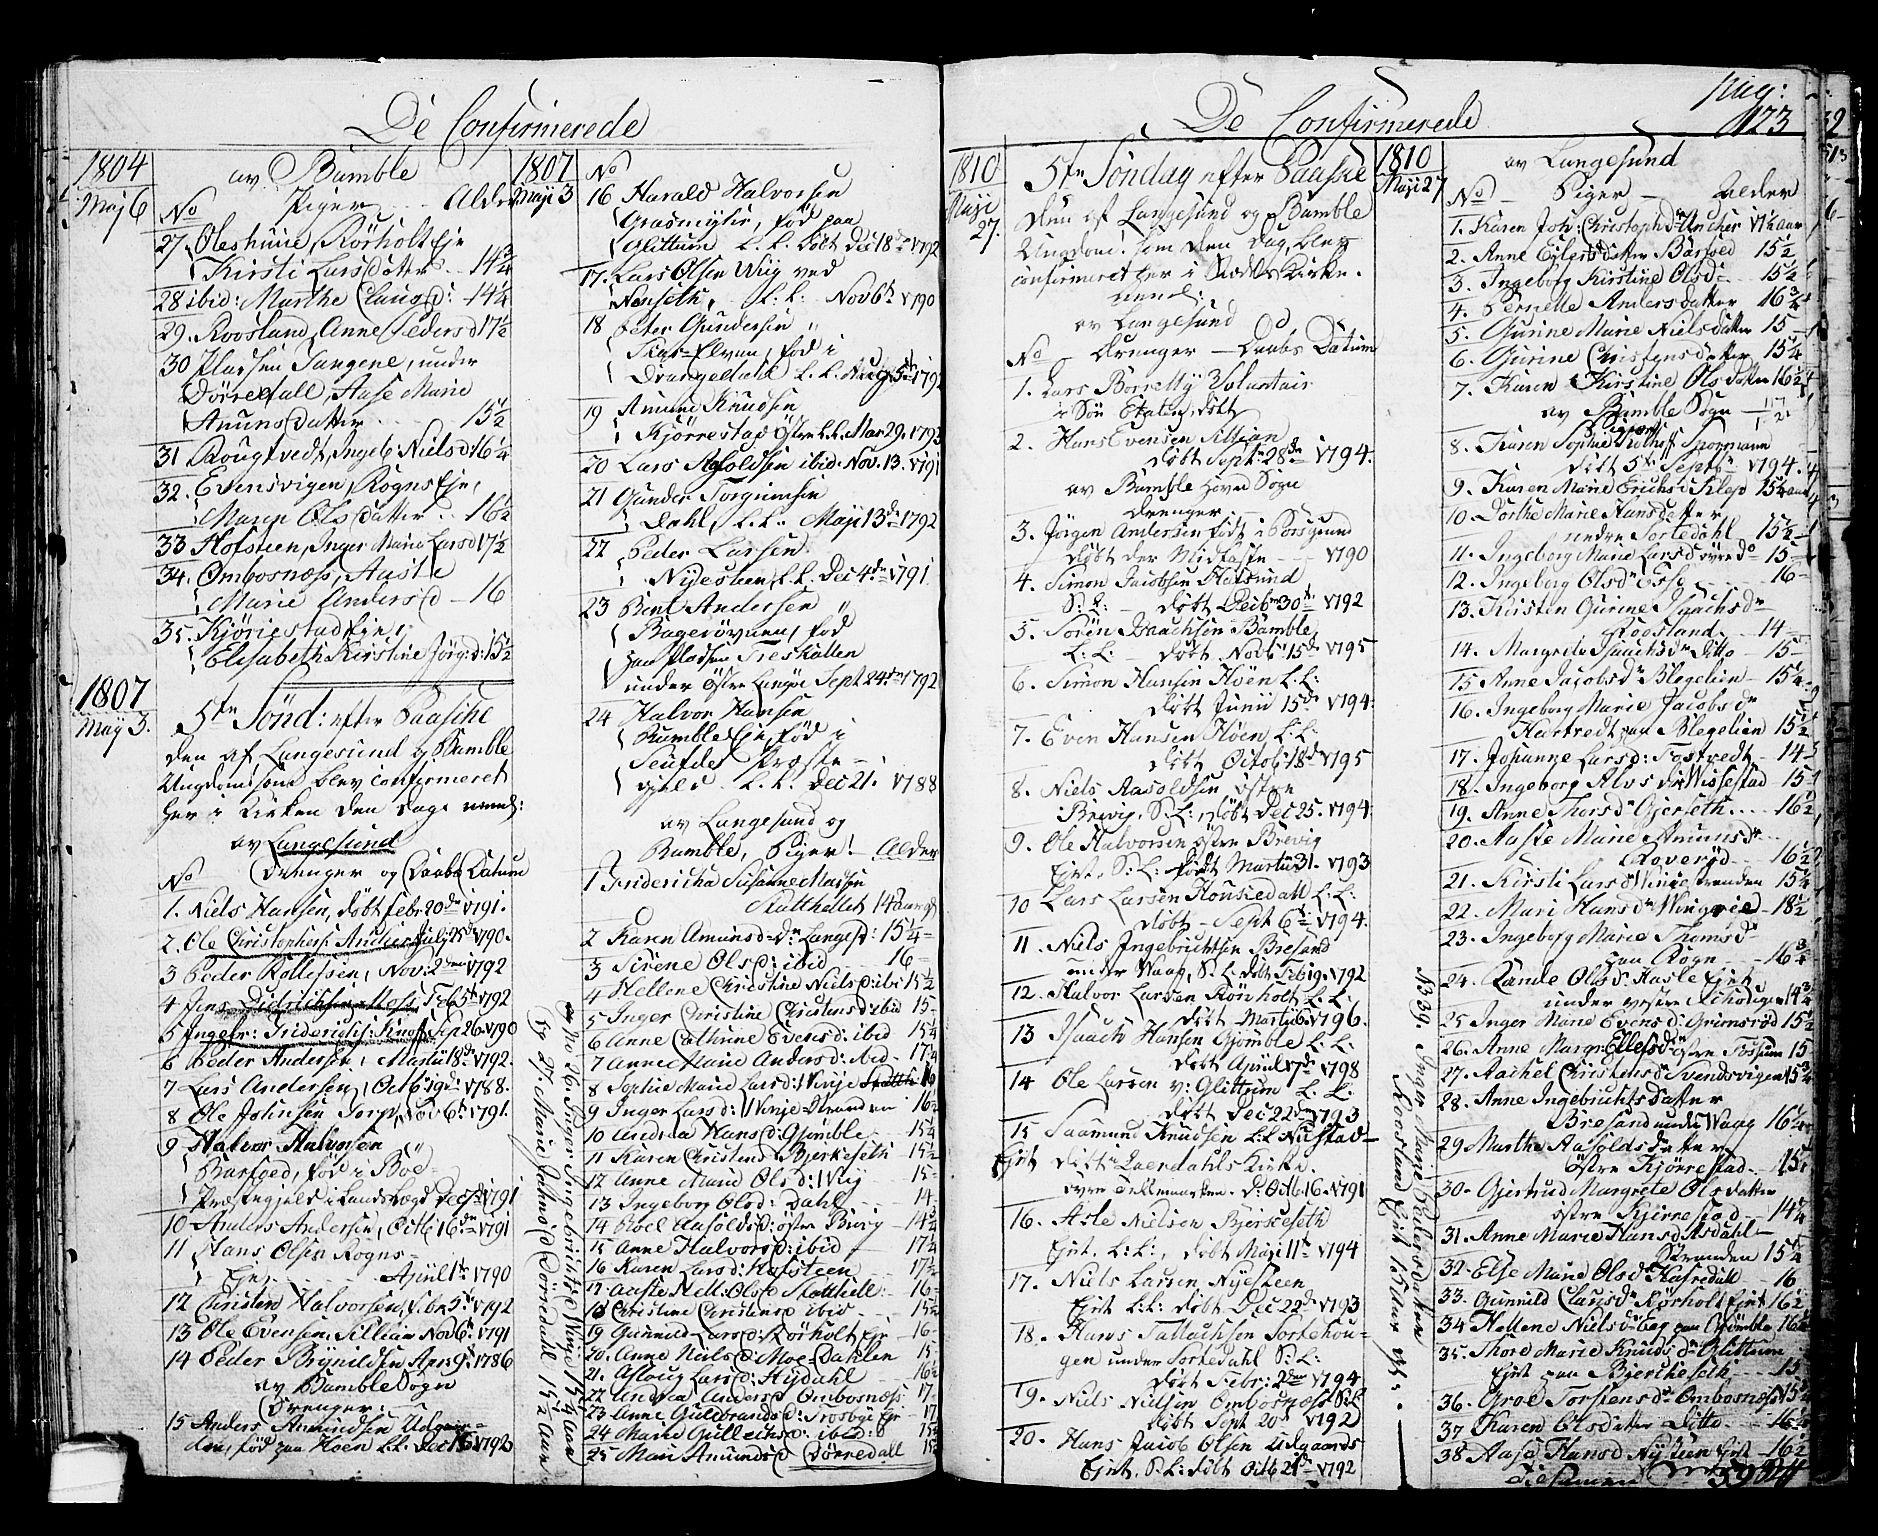 De Confirmerede
1804
Maj 6
av Bamble
No Piger Alder
27 Oleshuue, Rörholt Eje
Kirsti Larsdatter 14 3/4
28 ibid: Marthe Clausd: 14 1/4
29. Roosland, Anne Pedersd 17 1/2
30 Pladsen Tangene, under
Dörredall, Aase Marie
Amunsdatter 15 1/2
31 Rougtvedt, Ingeb: Nielsd 16 1/4
32. Evensvigen, Rogns Eje,
Maren Olsdatter 16 1/2
33 Hofsteen, Inger Marie Larsd 17 1/2
34. Ombosnæss, Aaste
Marie Andersd 16
35. Kjörrestad Eje,
Elisabeth Kirstine Jörg:d: 15 1/2
1807
May 3.
5te Sönd: efter Paaske
den af Langesund og Bamble
Ungdom som blev confirmeret
her i Kirken den Dag: nemel:
av Langesund
No Drenger og Daabs Datum
1. Niels Hansen, döbt febr. 20de 1791.
2. Ole Christophers: Julj 25de 1790.
3 Peder Rollefsen, Nov: 2den 1792
4 Jens Didrichsen Moss, Feb 5te 1792
5 Ingebr: Friderichs: Knoff Sep 26. 1790
6 Peder Andersen, Martii 18de 1792.
7 Lars Andersen, Octb 19de 1788.
8 Ole Johnsen Torp, Nov 6te 1791.
9 Halvor Halvorsen
Barfoed, föd i Böe
Præstegield i Landskogd Dec 1791
10 Anders Andersen, Octb 16de 1791
11 Hans Olsen Rogns-
Eje, April 1te 1790
12 Christen Halvorsen, Febr 5te 1792
13 Ole Evensen Sillian Nov 6te 1791
14 Peder Brynildsen Apr 9te 1786
av Bamble Sogn
Drenger:
15 Anders Amundsen Udgaar-
den, föd paa Hoen L.L. Dec 1792
1807
Maji 3
No
16 Harald Halvorsen
Grasmyhr, föd paa
Glittum L.L. döbt Dec 18de 1792
17. Lars Olsen Wiig ved
Nenseth, L.L. Nov 6te 1790
18 Peter Gundersen
Skar-Elven, föd i
Drangedahl L.L. Aug 5te 1792
19 Amund Knudsen
Kjörrestad Östre L.L. Mar 29. 1793
20 Lars Aasoldsen ibid. Nov. 13. 1791
21 Gunder Torgrimsen
Dahl, L.L. Maji 13de 1792
22 Peder Larsen
Nyesteen L.L. Dec 4de 1791.
23 Bent Andersen
Bageröven, föd
paa Pladsen Treskatten
under Östre Langöe Sept 24de 1792
24 Halvor Hansen
Bamble Eje, föd i
Seufde Præste-
gjeld L.L. Dec 21. 1788
av Langesund og
Bamble, Piger! Alder
1 Fridericha Susanne Massen
Stathellet 14 aar
2 Karen Amunsd: Langesd: 15 1/4
3 Sirene Olsd: ibid 16
4 Hellene Christine Nielsd: ibid 15 1/2
5 Inger Christine Christensd: ibid 15
6 Anne Cathrine Evensd: ibid 15 1/4
7 Anne Marie Andersd: ibid 17 1/4
8 Sophie Marie Larsd: Winje 16
9 Inger Larsd: Winje Stranden 16 1/2
10 Andrea Hansd: Gjömble 15 1/4
11 Karen Christensd: Bjerkeseth 15 1/2
12 Anne Marie Olsd: Wiig 15
13 Ingeborg Olsd: Dahl 14
14 Roel Aasoldsd: östre Bievig 14 3/4
15 Anne Halvorsd: ibid 17 1/4
16 Karen Larsd: Hafsteen 17 1/2
17 Aaste Hell: Olsd: Stathelle 16
18 Christine Christensd: ibid 15 1/2
19 Gunnild Larsd: Rörholt Eje 16
20. Anne Neils d: Moe-Dahlen 15
21. Aslaug Larsd: Hydahl 16 1/2
22 Andrea Andersd Ombosnæss 17
23 Anne Gulbrandsd: Frosbye Eje 17
24 Marie Gullechsd: ibid: 15 1/2
25 Mari Amundsd Dörredall 15 1/2
No 26. Inger Ingebrittsd: Winje 15 1/4 Aar
27. Marie Johnsd Dörredahl 15 1/2 Aar
De Confirmerede
pag:
123
1810
Maji
27.
5te Söndag efter Paaske
den af Langesund og Bamble
Ungdom! som den Dag, blev
confirmeret her i Stedets Kirke.
nemel:
av Langesund
No Drenger Daabs Datum
1. Lars Borretty Voluntair
i Söe Etaten, döbt
2. Hans Evensen Sillian
döbt Septr 28de 1794.
av Bamble Hoved Sogn
Drenger
3. Jörgen Andersen födt i Porsgrund
döbt der Midfaste 1790
4. Simon Jacobsen Harsund,
S: L: döbt Decb 30te 1792
5. Sören Isaachsen Bamble,
L: L: döbt Novb 15de 1795
6. Simon Hansen Höen L: L:
döbt Junii 15de 1794.
7. Even Hansen Höen L: L:
döbt Octob 18de 1795
8. Niels Aasoldsen östre
Brevig, S: L: döbt Dec 25. 1794.
9. Ole Halvorsen östre Brevig
Ejet. S: L: födt Martii 31. 1793
10 Lars Larsen Honsiedall L: L:
döbt Sept 6te 1794.
11. Niels Ingebrichtsen Bresand
under Waag, S: L: döbt Feb 19. 1792
12. Halvor Larsen Rönholt L: L:
döbt Martii 6te 1796.
13 Isaach Hansen Gjömble L: L:
döbt April 17de 1798
14 Ole Larsen v: Glittum L: L:
döbt Dec 22de 1793
15 Saamund Knudsen L: L Nustad-
Ejet döbt i Laerdahls Kirke.
övre Tellemarken. D: Octb 16. 1791
16. Asle Nielsen Bjerkeseth
Ejet. L: L:, döbt Maji 11te 1794
17. Niels Larsen Nyesteen
Ejet L: L: döbt Dec 22de 1793
18. Hans Tallachsen Sortehou-
gen under Sortedahl S: L:
döbt Febr: 2den 1794
19. Niels Nielsen Ombosnæss S: L
döbt Sept 20de 1792
20. Hans Jacob Olsen Udgaards
Ejet. S: L: döbt Octb 21de 1792
1810
Maji 27
av Langesund
No Piger Alder
1. Karen Joh: Christophd: Ancher 17 1/2 aar
2. Anne Eylersdatter Barfoed 15 1/2
3. Ingeborg Kirstine Olsd: 15 1/2
4. Pernelle Andersdatter 16 3/4
5. Gurine Marie Nielsdatter 15
6. Gurine Christensdatter 15 1/4
7. Karen Kirstine Olsdatter 16 1/2
av Bamble Sogn
Piger
8. Karen Sophie Rothoff Sporrmann
döbt 5te Septbr 1794.
9. Karen Marie Erichsd: Klep 15 1/4 aar
10. Dorthe Marie Hansdatter
nedre Sortedahl 15 1/2
11. Ingeborg Marie Larsd övre do 15
12. Ingeborg Olsd: Esse 16
13. Kirsten Gurine Isaachsd:
Roosland 14
14. Margrete Isaachsd: Ditto 15
15 Anne Jacobsd: Blegelien 15 1/4
16. Ingeborg Marie Jacobsd:
Hartvedt paa Blegelien 15 1/2
17. Johanne Larsd: Tostvedt 14
18. Ingeborg Alvsd: Wissestad 15
19. Anne Thorsd: Gjerseth 16 1/2
20. Aaste Marie Amunsd:
Roveröd 16 1/2
21. Kirsti Larsd: Winje Stranden 15 1/4
22. Mari Hansd: Wingreid 18 1/2
23. Ingeborg Marie Thomsd:
paa Rogn 16 3/4
24. Rande Olsd: Hasle Ejet
under vestre 14 3/4
25 Inger Marie Evensd: Grimsröd 15 1/2
26. Anne Margr: Ellesd: östre Fossum 15
27. Rachel Christensd: Svendsvigen 15 3/4
28. Anne Ingebrichtsdatter
Bresand under Waag 16 1/4
29 Marthe Aasoldsdatter
östre Kjörrestad 15
30. Gjertrud Margrete Olsdatter
östre Kjörrestad 14 1/4
31. Anne Marie Hansd: Asdahl
Stranden 15 1/4
32. Else Marie Olsd: Hasredahl 16
33. Gunnild Clausd: Rörholt Ejet 16 1/2
34 Hellene Nielsd: Eeg paa Gömble 16 1/2
35. Thore Marie Knudsd: Glittum
Ejet paa Bjerkeseth 15
36. Groe Torstensd: Ombosnæss 15 1/2
37 Karen Olsdatter Ditto 16 1/2
38 Aase Hansd Nysteen Ejet 16 1/2
Tilsamen 59
N3 39. Inger Marie Pedersdatter
Roosland Ejet 15 aar